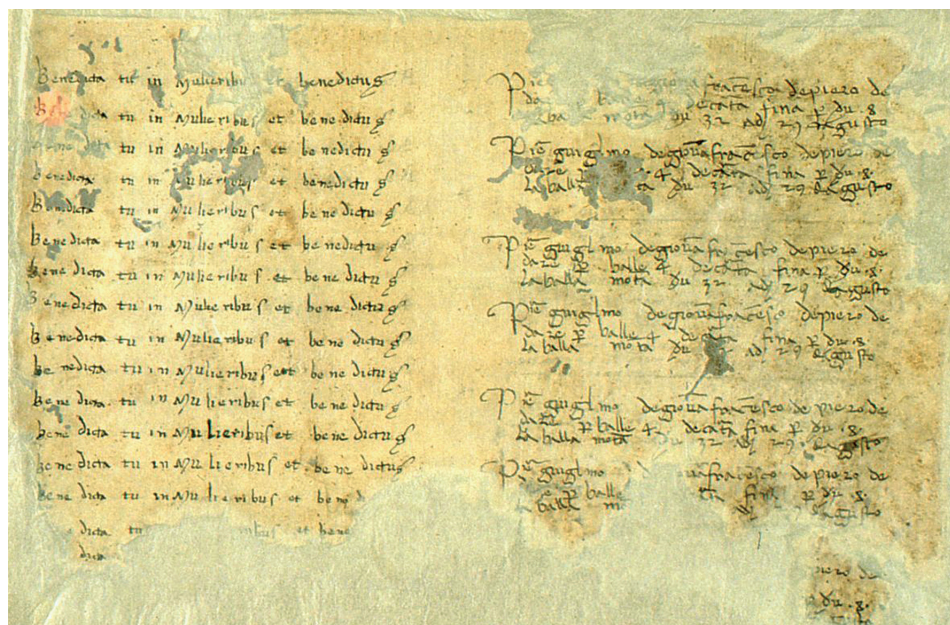 Benedicta tu in Mulieribus et benedictus
dicta tu in Mulieribus et benedictus
tu in Mulieribus et benedictus
Benedicta tu in Mulieribus et benedictus
Benedicta tu in Mulieribus et benedictus
Benedicta tu in Mulieribus et benedictus
Benedicta tu in Mulieribus et benedictus
Benedicta tu in Mulieribus et benedictus
Benedicta tu in Mulieribus et benedictus
Benedicta tu in Mulieribus et benedictus
Benedicta tu in Mulieribus et benedictus
Benedicta tu in Mulieribus et benedictus
Benedicta tu in Mulieribus et benedictus
Benedicta tu in Mulieribus et bened
dicta tu ribus et bene
dicta
francesco depiero de
decata fina p du 8
mota du 32 adj 29 dagusto
Pie guiglmo degiovafrancesco depiero de
4 decata fina p du 8.
la balla ta du 32 adj 29 dagusto
Pie guiglmo degiovafrancesco depiero de
dare p balle 4 decata fina p du 8.
la balla mota du 32 adj 29 dagusto
Pie guiglmo degiovafrancesco depiero de
dare p balle 4 decata fina p du 8.
la balla mota du 32 adj 29 dagusto
Pie guiglmo degiovafrancesco depiero de
dare p balle 4 decata fina p du 8.
la balla mota du 32 adj 29 dagusto
Pie guiglmo ovafrancesco depiero de
dare p balle ta fina p du 8.
la balla mo dagusto
piero de
du 8.